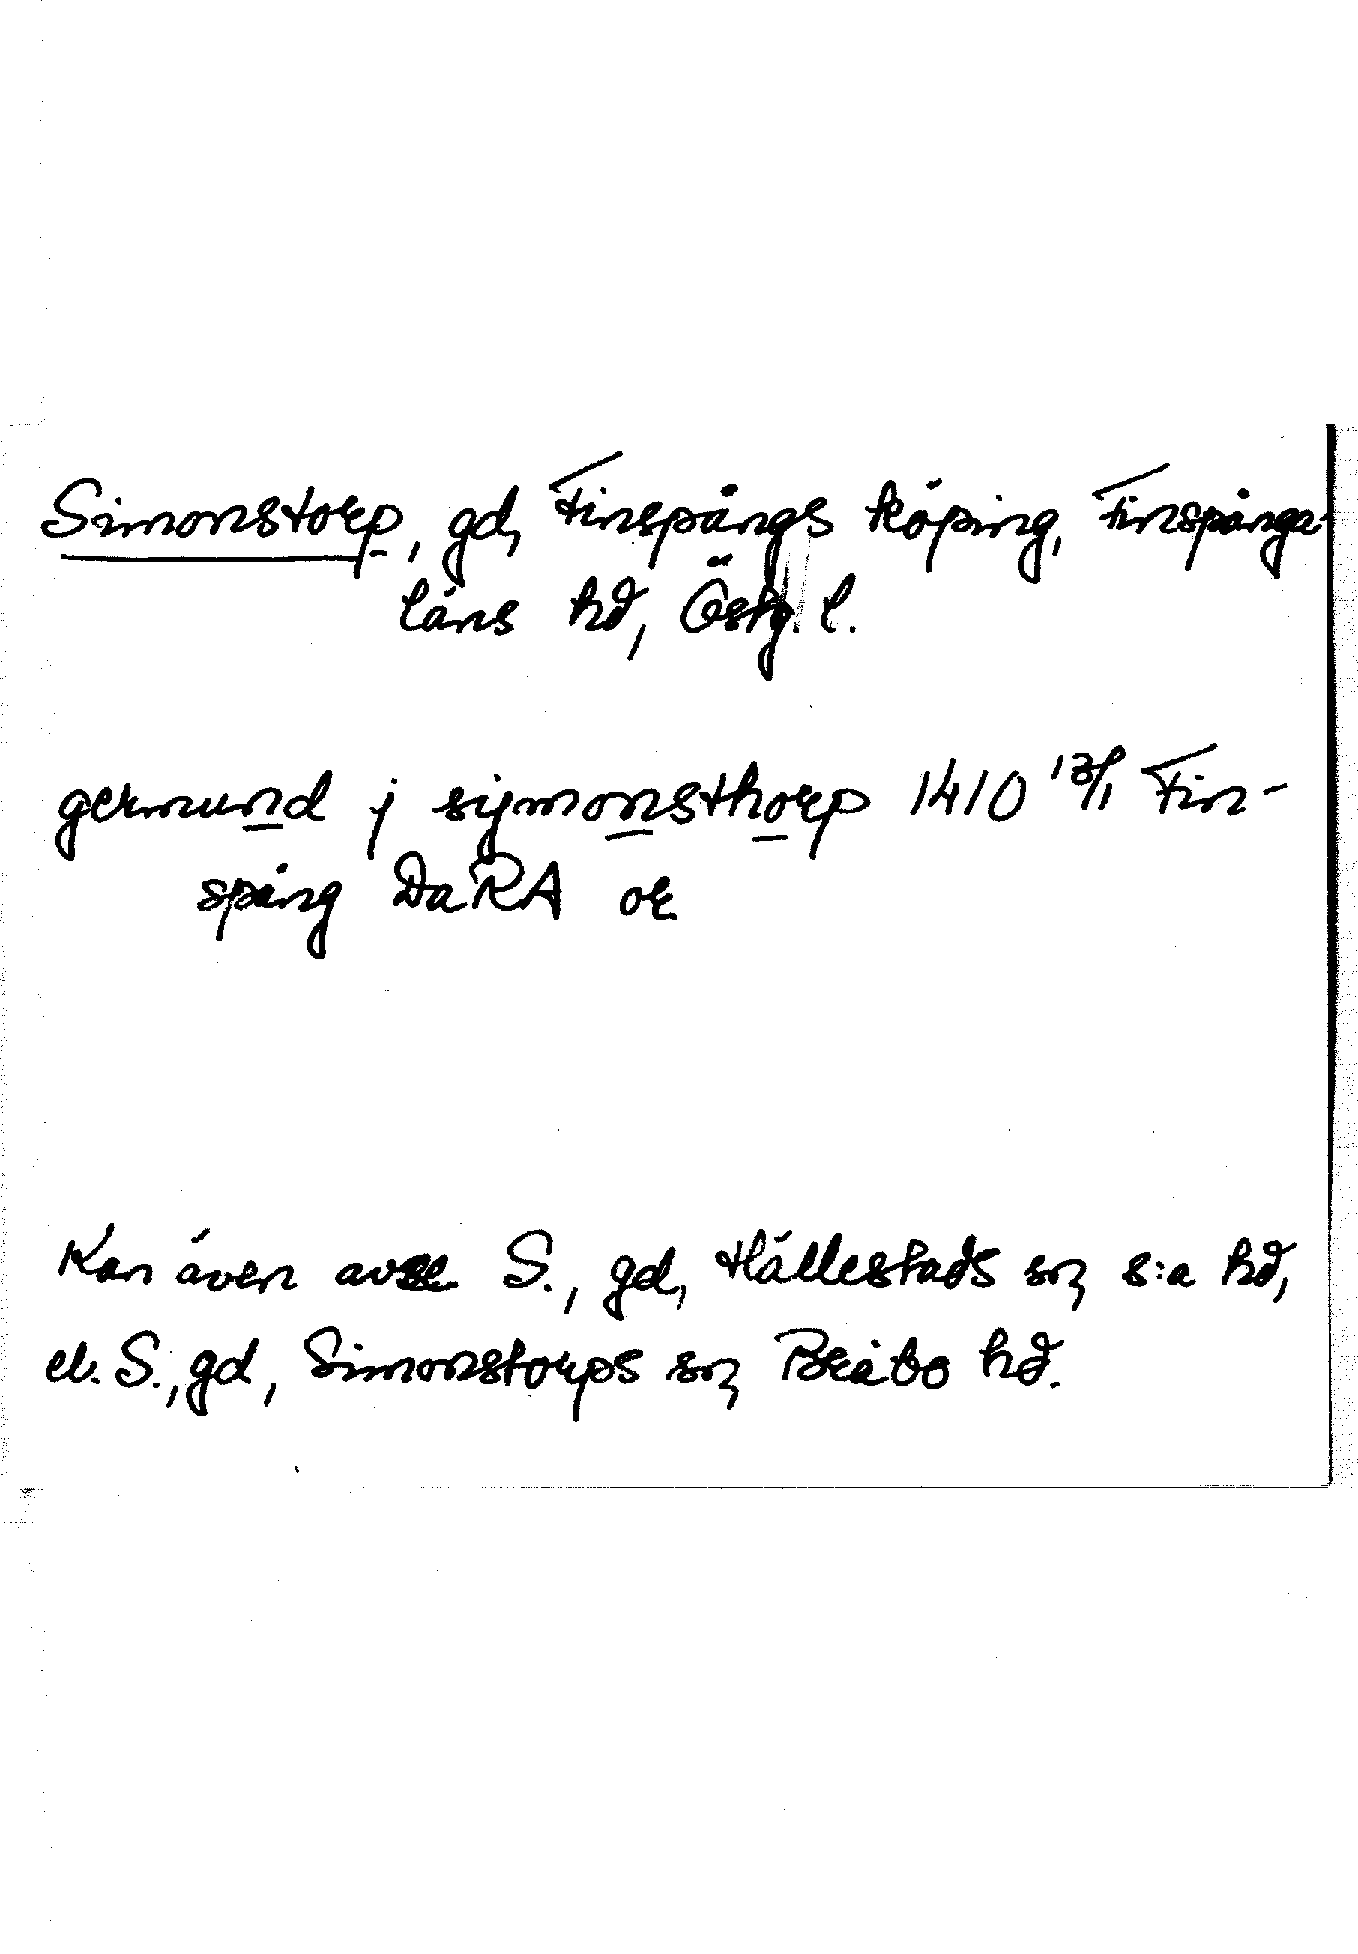 Simonstorp, gd, Finspångs köping, Finspånga-
läns hd, Östg. l.
germund j symonsthorp 1410 13/1 Fin-
spång DaRA or
Kan även avse S., gd, Hällestads sn, s:a hd,
el. S., gd, Simonstorps sn, Bråbo hd.